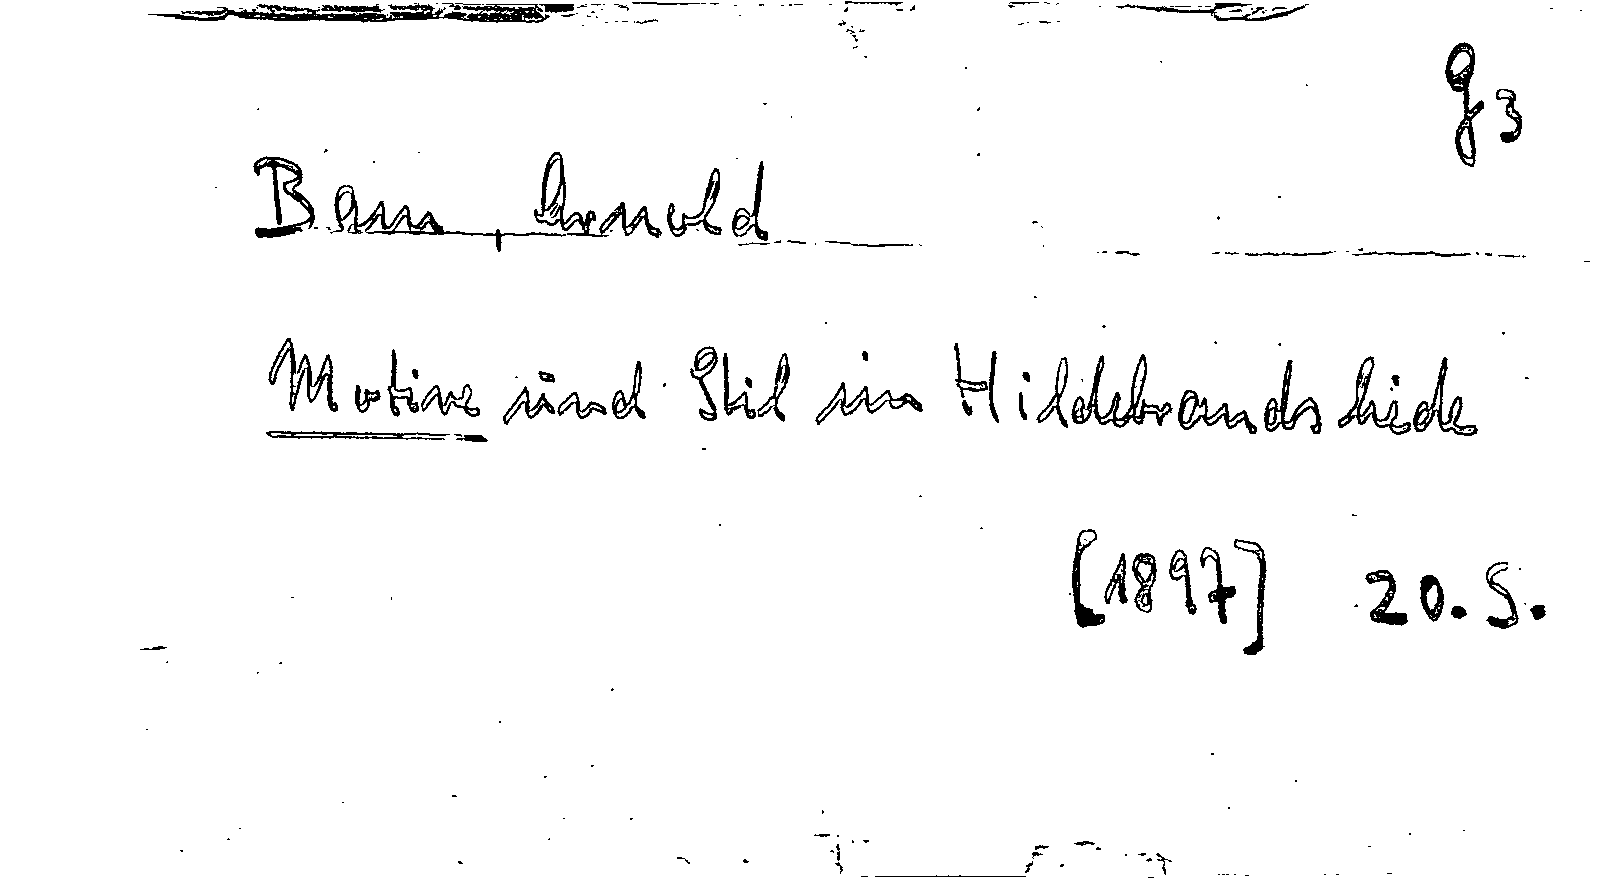 g3
Bam, Arnold
Motive und Stil im Hildebrandsliede
[1897] 20. S.